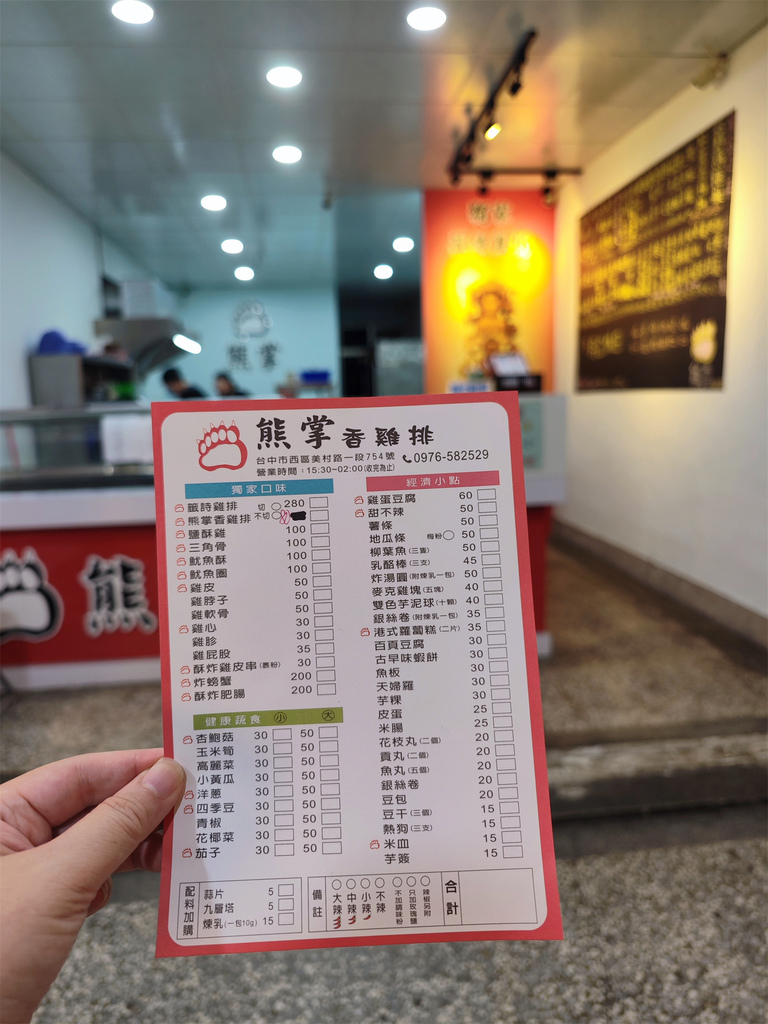 熊掌
熊
熊掌香雞排
台中市西區美村路一段754號 0976-582529
營業時間：15:30~02:00(收完為止)
獨家口味
籤詩雞排 切 280
熊掌香雞排 不切
鹽酥雞 100
三角骨 100
魷魚酥 100
魷魚圈 100
雞皮 50
雞脖子 50
雞軟骨 50
雞心 30
雞胗 30
雞屁股 35
酥炸雞皮串(裹粉) 30
炸螃蟹 200
酥炸肥腸 200
健康蔬食 小 大
杏鮑菇 30 50
玉米筍 30 50
高麗菜 30 50
小黃瓜 30 50
洋蔥 30 50
四季豆 30 50
青椒 30 50
花椰菜 30 50
茄子 30 50
經濟小點
雞蛋豆腐 60
甜不辣 50
薯條 50
地瓜條 梅粉 50
柳葉魚(三隻) 50
乳酪棒(三支) 45
炸湯圓(附煉乳一包) 50
麥克雞塊(五塊) 40
雙色芋泥球(十顆) 40
銀絲卷(附煉乳一包) 35
港式蘿蔔糕(二片) 35
百頁豆腐 30
古早味蝦餅 30
魚板 30
天婦羅 30
芋粿 30
皮蛋 25
米腸 25
花枝丸(二個) 20
貢丸(二個) 20
魚丸(五個) 20
銀絲卷 20
豆包 20
豆干(三個) 15
熱狗(三支) 15
米血 15
芋簽 15
配料加購
蒜片 5
九層塔 5
煉乳(一包10g) 15
備註
大辣
中辣
小辣
不辣
不加調味粉
只加玫瑰鹽
辣椒另附
合計